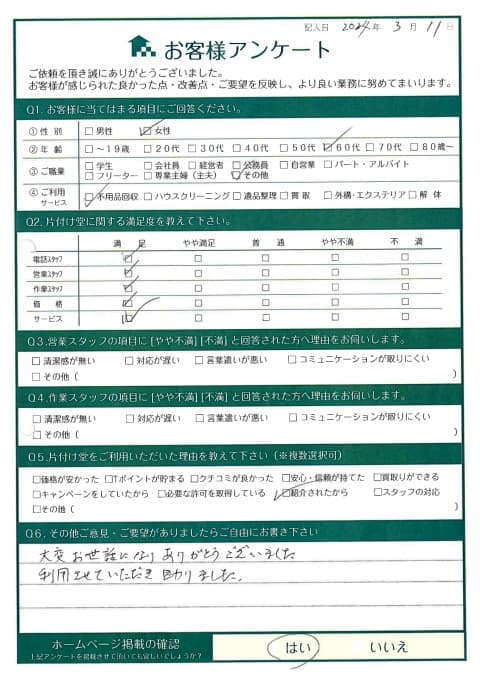 記入日 2024年 3月 11日
お客様アンケート
ご依頼を頂き誠にありがとうございました。
お客様が感じられた良かった点・改善点・ご要望を反映し、より良い業務に努めてまいります。
Q1. お客様に当てはまる項目にご回答ください。
①性 別 □男性 □女性
②年 齢 □～19歳 □20代 □30代 □40代 □50代 □60代 □70代 □80歳～
③ご職業 □学生 □会社員 □経営者 □公務員 □自営業 □パート・アルバイト
□フリーター □専業主婦（主夫） □その他
④ご利用サービス □不用品回収 □ハウスクリーニング □遺品整理 □買取 □外構・エクステリア □解体
Q2. 片付け堂に関する満足度を教えて下さい。
満 足 やや満足 普 通 やや不満 不 満
電話スタッフ □ □ □ □ □
営業スタッフ □ □ □ □ □
作業スタッフ □ □ □ □ □
価 格 □ □ □ □ □
サービス □ □ □ □ □
Q3.営業スタッフの項目に [やや不満] [不満] と回答された方へ理由をお伺いします。
□清潔感が無い □対応が遅い □言葉遣いが悪い □コミュニケーションが取りにくい
□その他（ ）
Q4.作業スタッフの項目に [やや不満] [不満] と回答された方へ理由をお伺いします。
□清潔感が無い □対応が遅い □言葉遣いが悪い □コミュニケーションが取りにくい
□その他（ ）
Q5.片付け堂をご利用いただいた理由を教えて下さい（※複数選択可）
□価格が安かった □Tポイントが貯まる □クチコミが良かった □安心・信頼が持てた □買取りができる
□キャンペーンをしていたから □必要な許可を取得している □紹介されたから □スタッフの対応
□その他（ ）
Q6. その他ご意見・ご要望がありましたらご自由にお書き下さい
大変お世話になりありがとうございました
利用させていただき助りました。
ホームページ掲載の確認 はい いいえ
上記アンケートを掲載させて頂いても宜しいでしょうか？